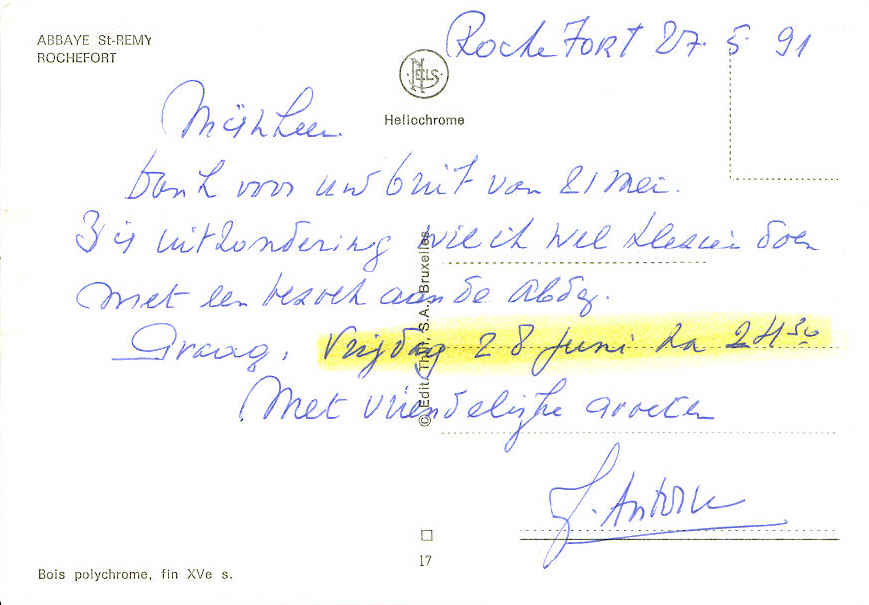 ABBAYE St-REMY
ROCHEFORT
Rochefort 27. 5 91
NELS
Heliochrome
Mijnheer
Dank voor uw brief van 21 mei.
Bij uitzondering wil ik wel plezier doen
met een bezoek aan de abdij.
Graag, vrijdag 28 juni na 2 H 30
Met vriendelijke groeten
Antoine
© Edit. Thill, S.A., Bruxelles
17
Bois polychrome, fin XVe s.